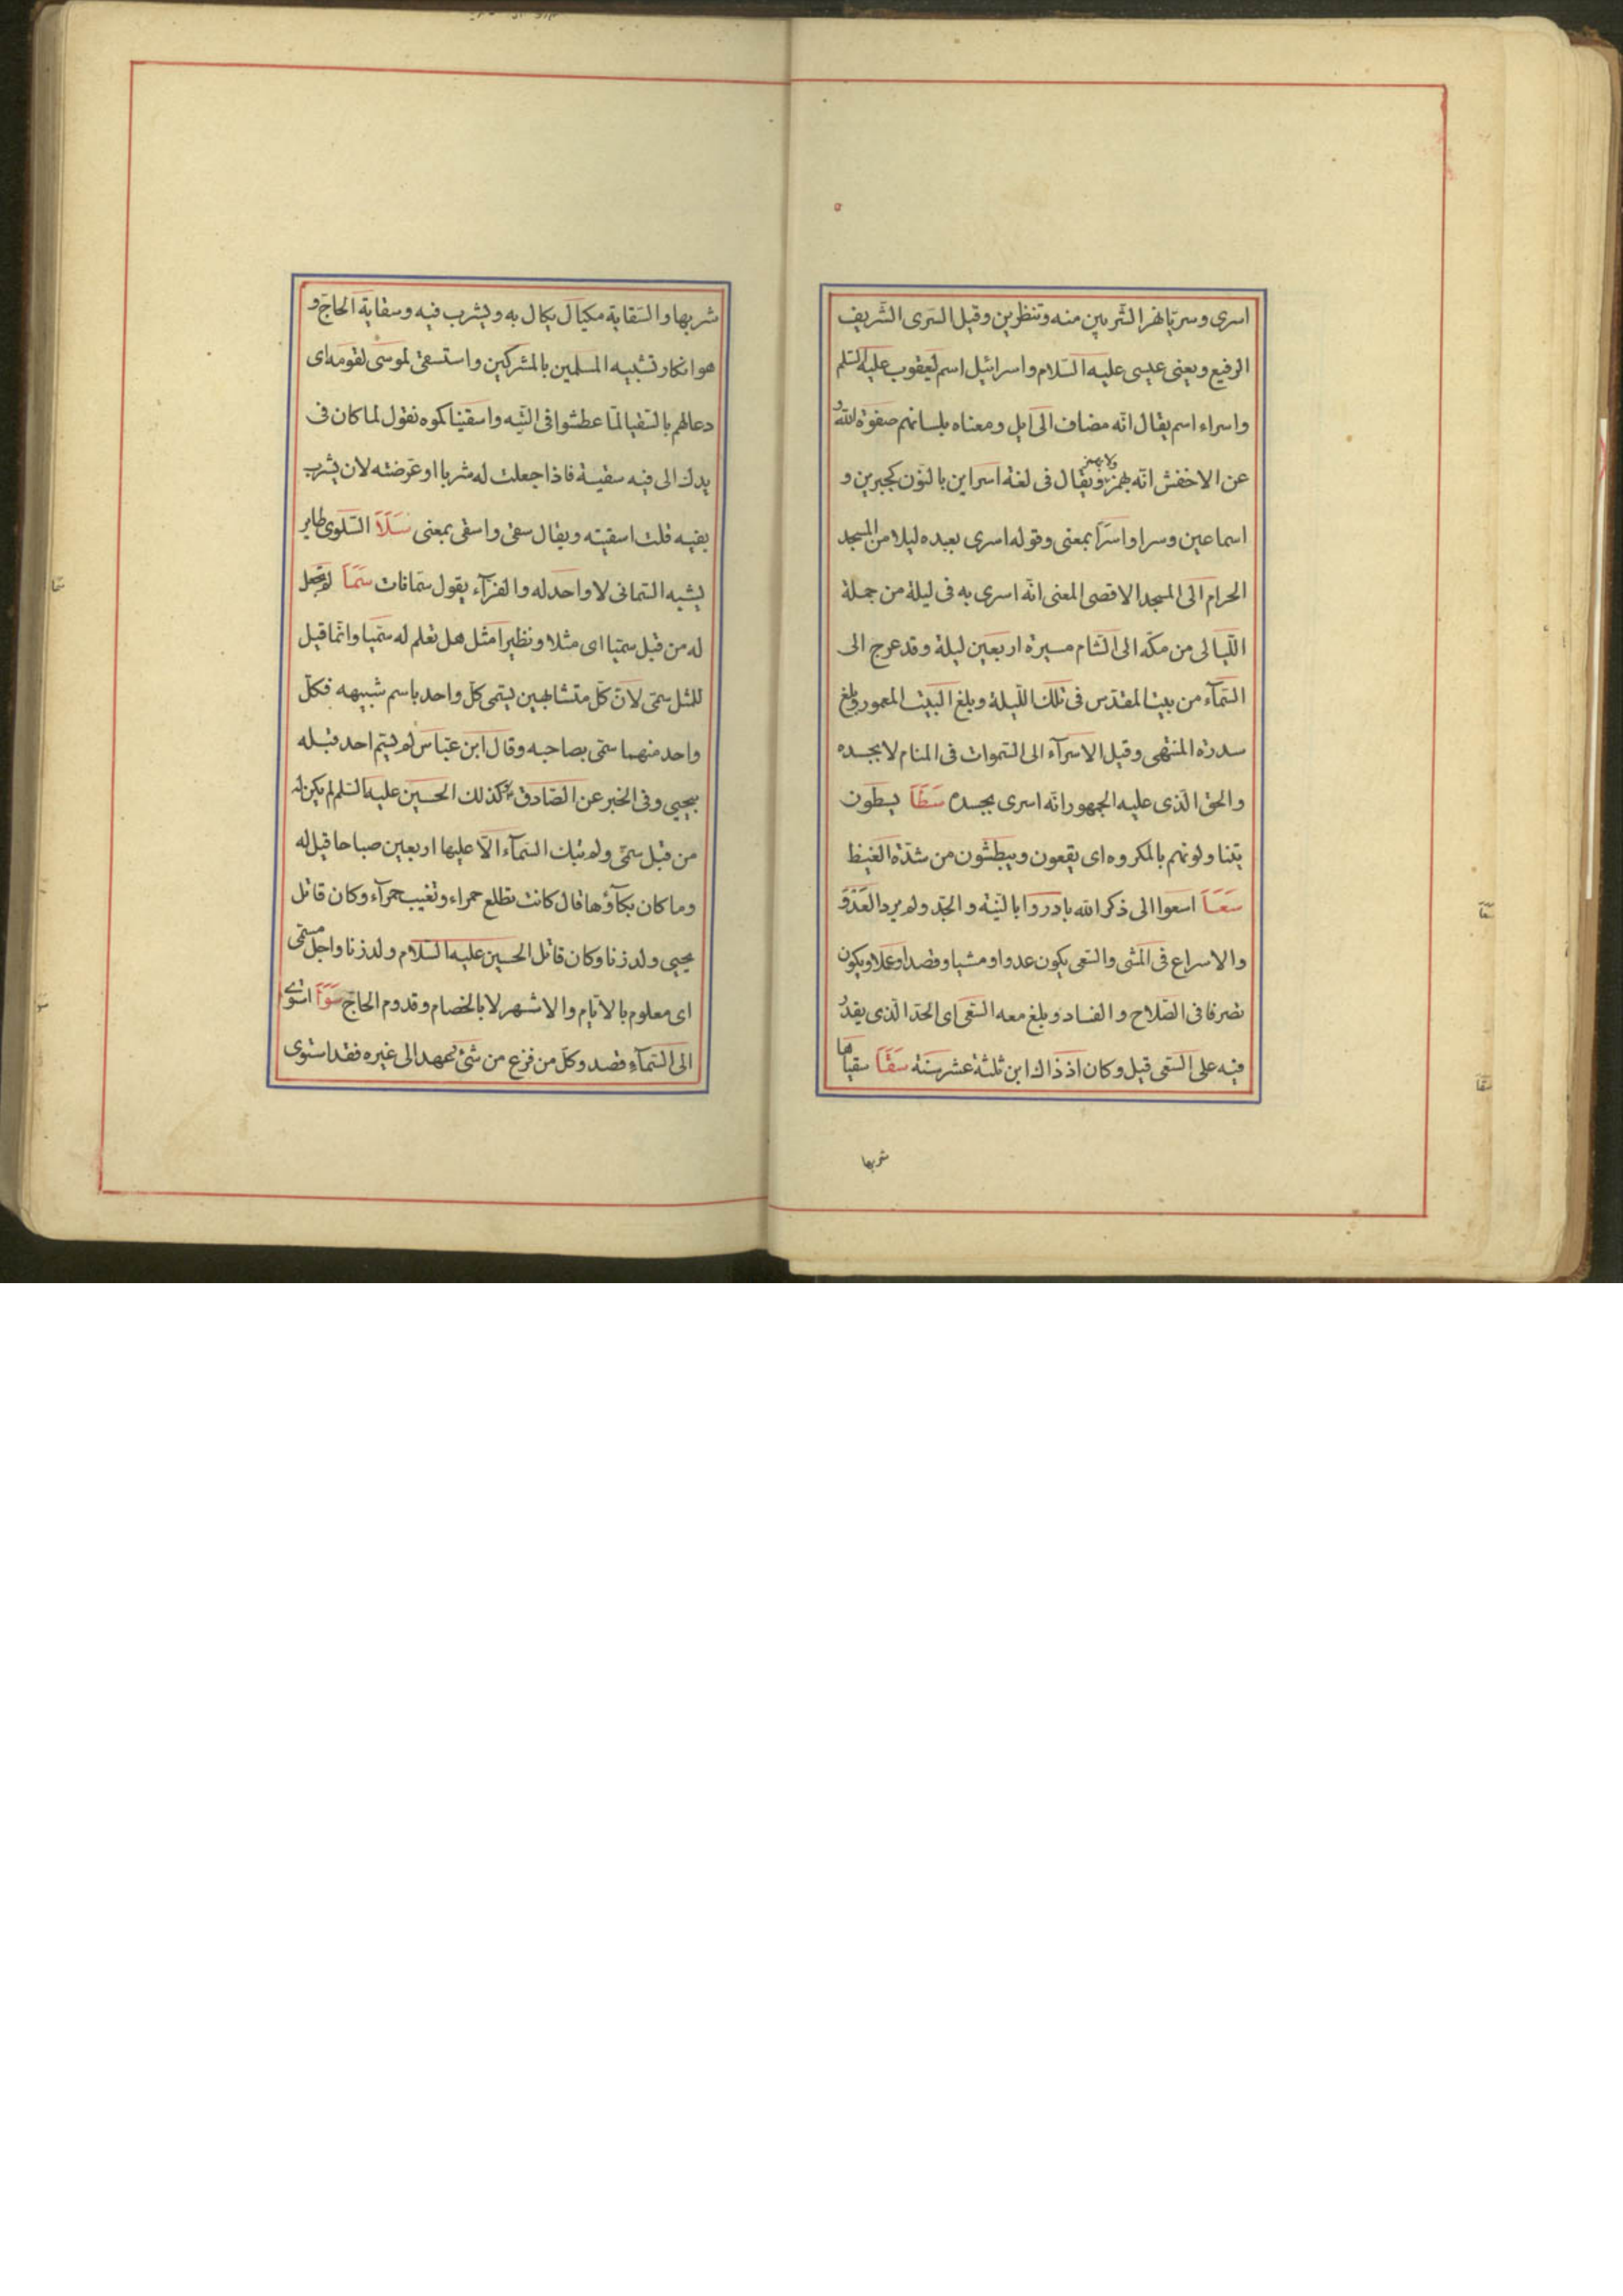 اسرى وسريّا نهرا لتشربين منه وتنظرين وقيل السرى الشريف
الرفيع ويعنى عيسى عليه السّلام واسرائيل اسم ليعقوب عليه السّلم
واسراء اسم يقال انّه مضاف الى ايل ومعناه بلسانهم صفوة اللّه و
عن الاخفش انّه يهمز ولا يهمز ويقال فى لغة اسراين بالنّون كجبرين و
اسماعين وسرا واسرا بمعنى وقوله اسرى بعبده ليلا من المسجد
الحرام الى المسجد الاقصى المعنى انّه اسرى به فى ليلة من جملة
اللّيالى من مكّه الى الشّام مسيرة اربعين ليلة وقد عرج الى
السّمآء من بيت المقدّس فى تلك اللّيلة وبلغ البيت المعمور وبلغ
سدرة المنتهى وقيل الاسرآء الى السّموات فى المنام لا بجسده
والحق الّذى عليه الجمهور انّه اسرى بجسده سَطَا يسطون
يتناولونهم بالمكروه اى يقعون ويبطشون من شدّة الغيظ
سَعَا اسعوا الى ذكر اللّه بادروا بالنّيّة والجدّ ولم يرد العدو
والاسراع فى المشى والسّعى يكون عدوا ومشيا وقصدا وعملا ويكون
تصرفا فى الصّلاح والفساد وبلغ معه السّعى اى الحدّ الّذى يقدر
فيه على السّعى قيل وكان اذ ذاك ابن ثلثة عشر سنة سَقَا سقياها
شربها
شربها والسّقاية مكيال يكال به ويشرب فيه وسقاية الحاج و
هو انكار تشبيه المسلمين بالمشركين واستسقى لموسى لقومه اى
دعا لهم بالسّقيا لمّا عطشوا فى التّيه واسقيناكموه نقول لما كان فى
يدك الى فيه سقيته فاذا جعلت له شربا او عرضته لان يشرب
بفيه قلت اسقيته ويقال سقى واسقى بمعنى سَلَا السّلوى طاير
يشبه السّمانى لا واحد له والفرّآء يقول سمّانات سَمَا لم نجعل
له من قبل سميّا اى مثلا ونظيرا مثل هل تعلم له سميّا وانّما قيل
للمثل سمىّ لانّ كلّ متشابهين يسمى كلّ واحد باسم شبيهه فكلّ
واحد منهما سمىّ بصاحبه وقال ابن عبّاس لم يسم احد قبله
بيحيى وفى الخبر عن الصّادق ع كذلك الحسين عليه السّلم لم يكن له
من قبل سمىّ ولم تبك السّمآء الّا عليها اربعين صباحا قيل له
وما كان بكآؤها قال كانت تطلع حمراء وتغيب حمرآء وكان قاتل
يحيى ولد زنا وكان قاتل الحسين عليه السّلام ولد زنا واجل مسمّى
اى معلوم بالايّام والاشهر لا بالخصام وقدوم الحاج سَوَا استوى
الى السّمآء قصد وكلّ من فزع من شئ يعمد الى غيره فقد استوى
سما
سوا
سعا
سقا